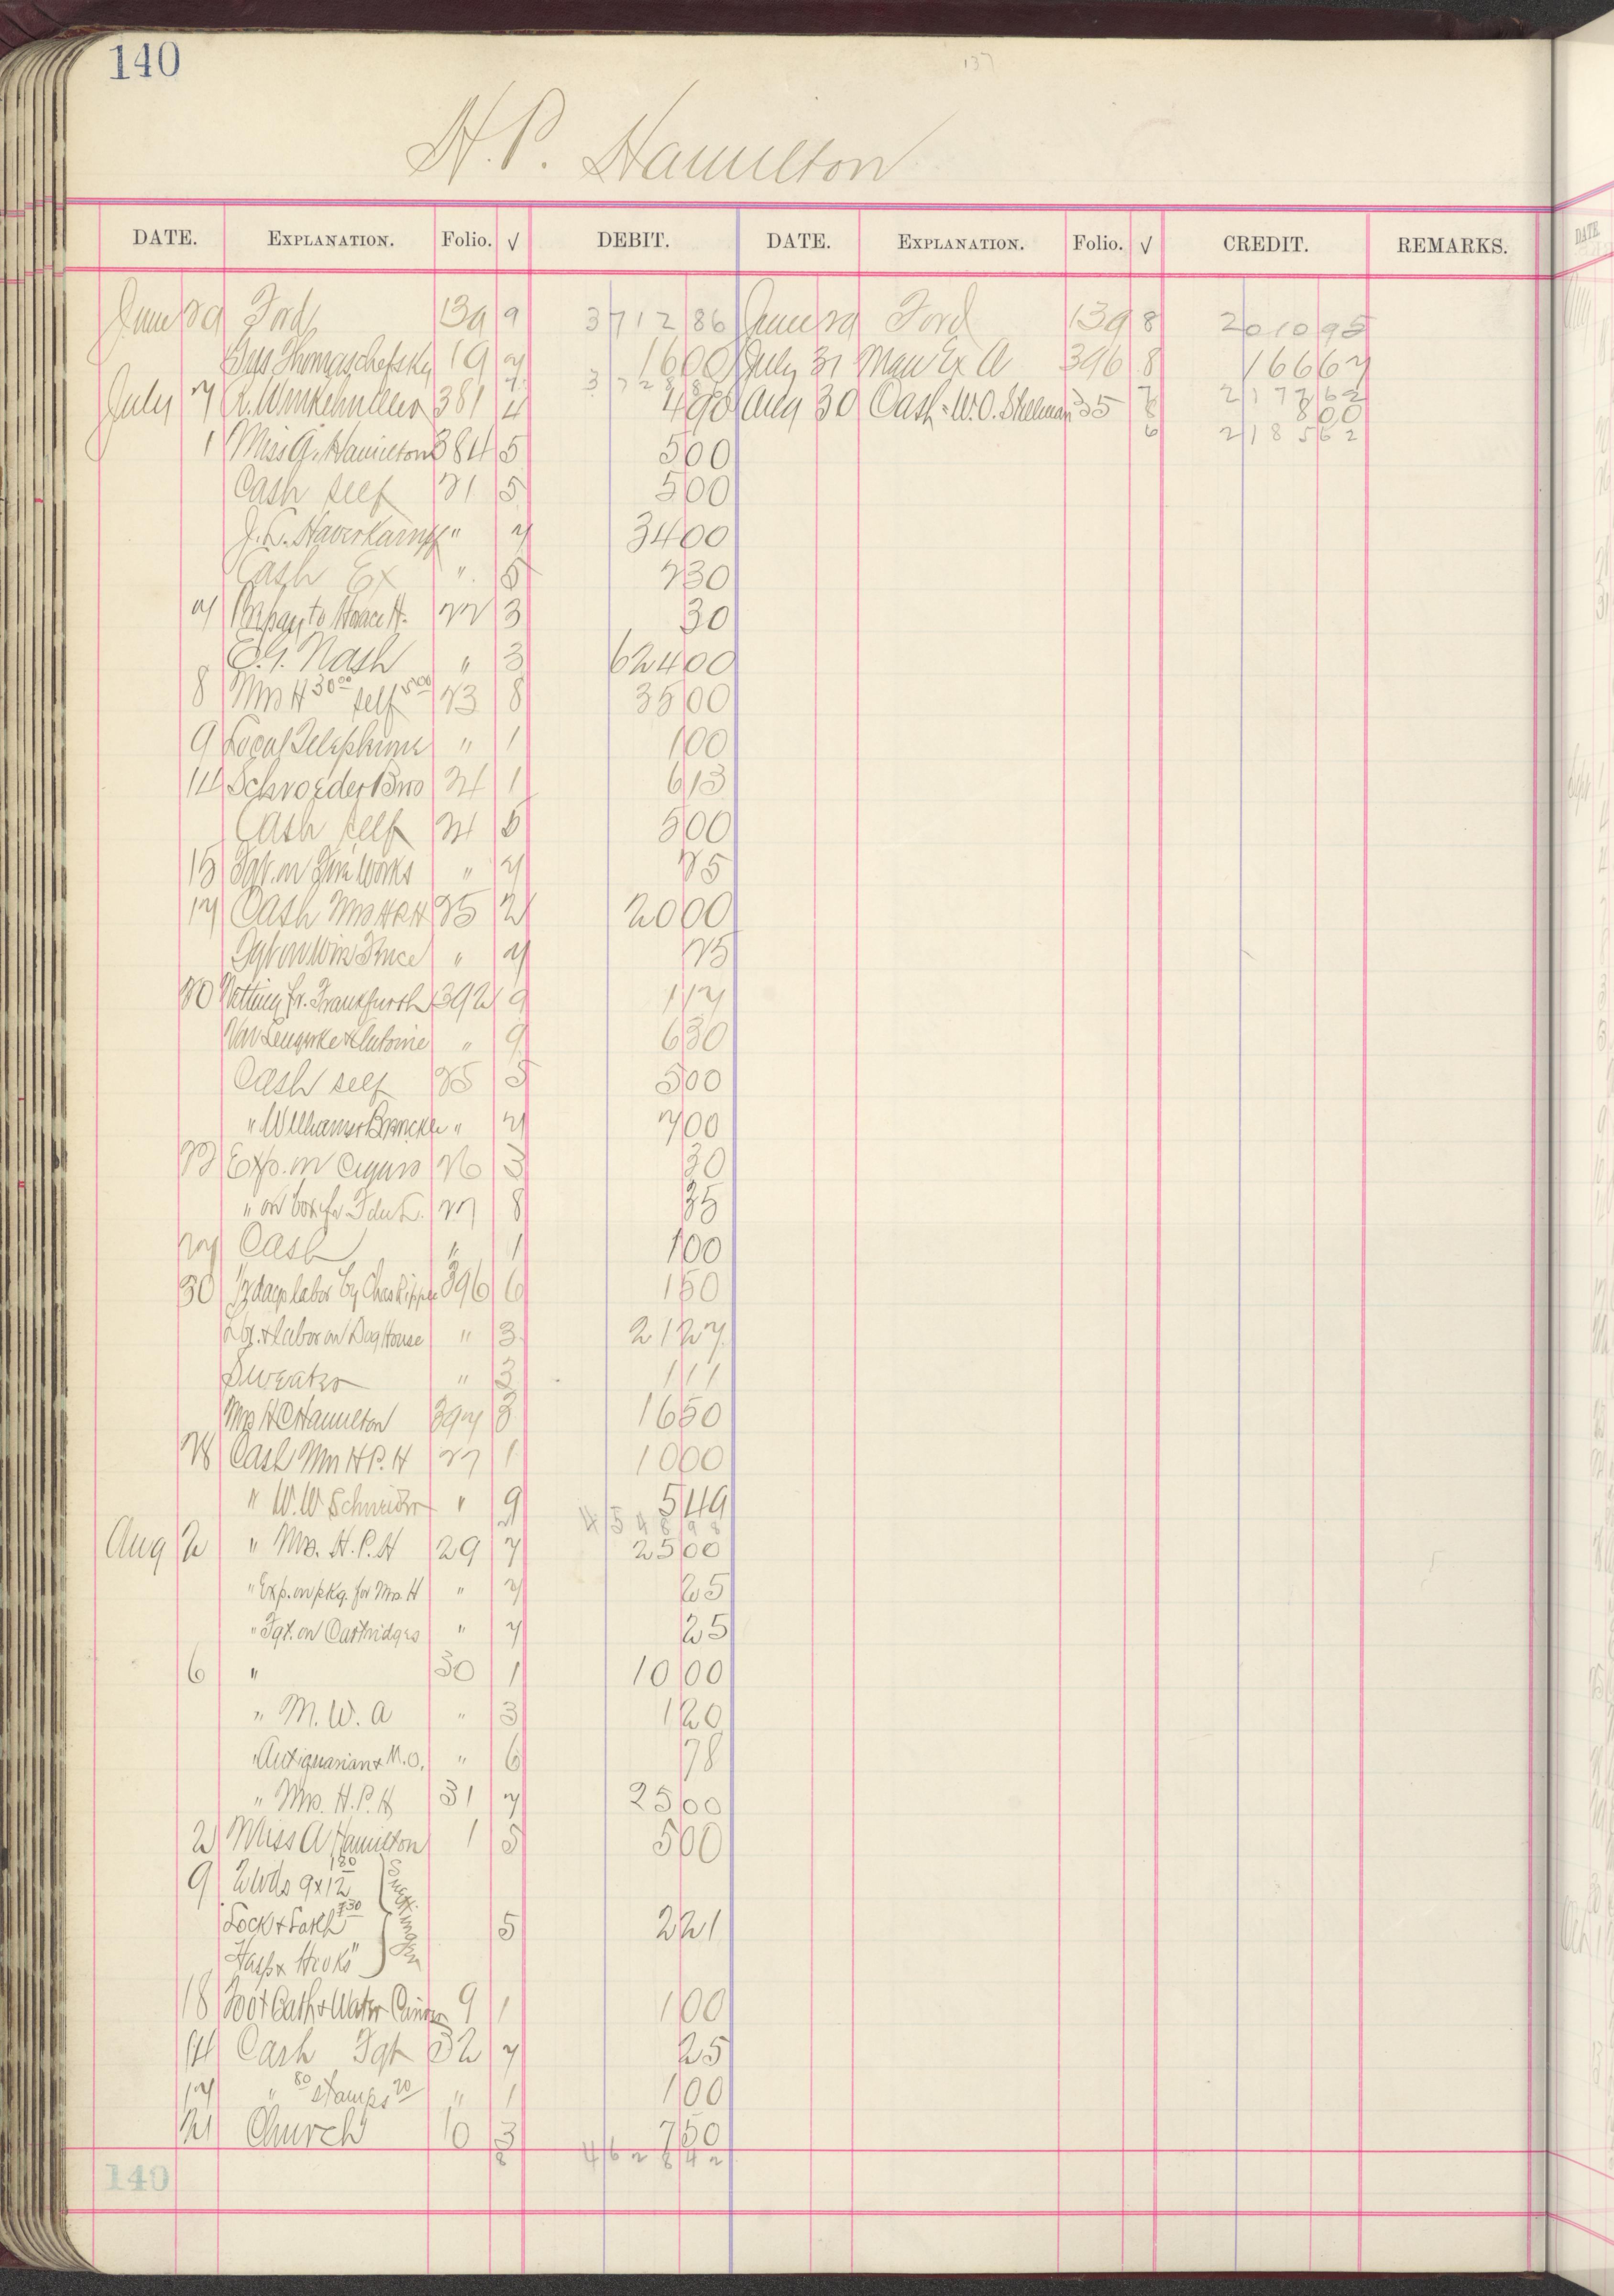 140
137
H. P. Hamilton
DATE. EXPLANATION. Folio. √ DEBIT. DATE. EXPLANATION. Folio. √ CREDIT. REMARKS.
June 29 Ford 139 9 3712 86 June 29 Ford 139 8 2010 95
Thomaschefsky 19 7 16 00 July 31 Man Ex A 396 8 166 67
3728 86 7 2177 62
July 7 R. Winkenwerder 381 4 4 90 Aug 30 Cash W.O. 35 8 8 00
6 2185 62
1 Miss A. Hamilton 384 5 5 00
Cash self 21 5 5 00
J. C. Haverkampf " 7 34 00
Cash Ex " 5 2 30
7 to Horace H. 22 3 30
E. G. Nash " 3 624 00
8 Mrs H 30 00 self 5 00 23 8 35 00
9 Local Telephone " 1 1 00
14 Schroeder Bros 24 1 6 13
Cash self 24 5 5 00
15 Fgt. on Works " 7 25
17 Cash Mrs HPH 25 2 20 00
Fgt on Wire Fence " 7 25
20 Netting fr. Frankfurth 392 9 1 17
Von Lengerke & Antoine " 9 6 30
Cash self 25 5 5 00
" Williams " 7 7 00
23 Exp. on Cigars 26 3 30
" on box 27 8 35
27 Cash " 1 1 00
30 1/2 days labor by Chas 396 6 1 50
& labor on Dog House " 3 21 27
Sweater " 3 1 11
Mrs H C Hamilton 397 3 16 50
28 Cash Mrs H.P.H 27 1 10 00
" W. W Schneider " 9 5 49
4548 98
Aug 2 " Mrs. H. P. H 29 7 25 00
" Exp. on pkg. for Mrs. H " 7 25
" Fgt. on Cartridges " 7 25
6 " 30 1 10 00
" M. W. A " 3 1 20
" Antiquarian & M.O. " 6 78
" Mrs. H. P. H 31 7 25 00
2 Miss A Hamilton 1 5 5 00
9 9x12 1 80
Lock & 5 2 21
Hasp & Hooks
18 Foot Bath & Water 9 1 1 00
14 Cash Fgt 32 7 25
17 " 80 stamps 20 " 1 1 00
21 Church 10 3 7 50
8 4628 42
140